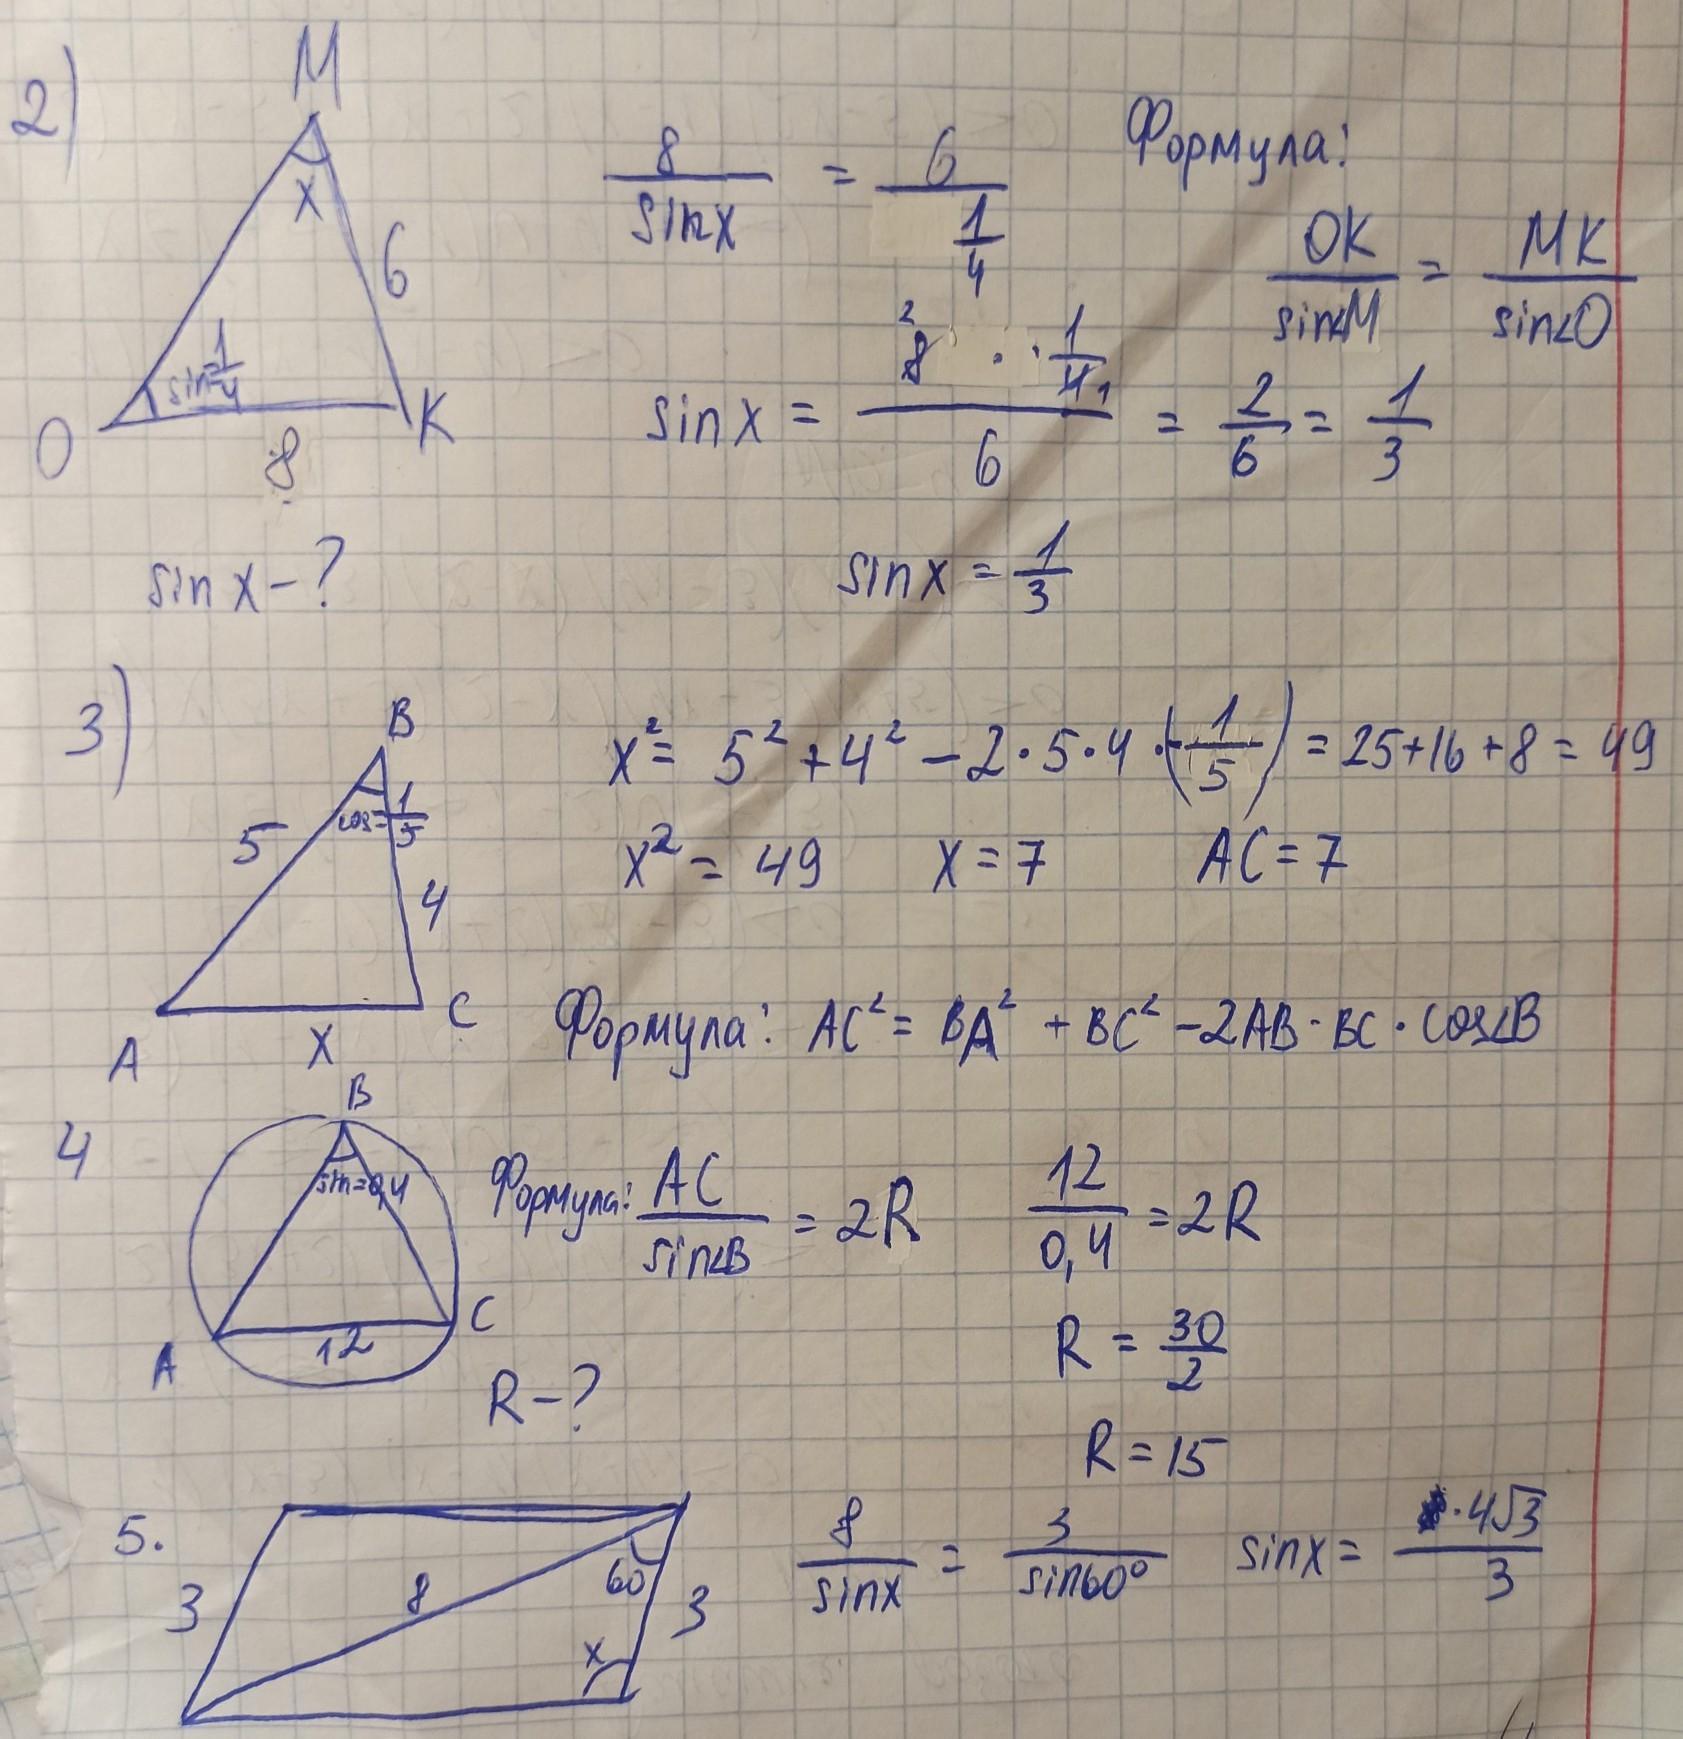 2)
M
X
6
sin=1/4
O
8
K
sin x - ?
8/sinx = 6/(1/4)
Формула:
OK/sin∠M = MK/sin∠O
sin x = (8 · · 1/4)/6 = 2/6 = 1/3
sin x = 1/3
3)
B
5
cos=1/5
4
A
X
C
x² = 5² + 4² - 2·5·4·(-1/5) = 25+16+8 = 49
x² = 49 x = 7 AC = 7
Формула: AC² = BA² + BC² - 2AB·BC·cos∠B
4
B
sin=0,4
A
12
C
R - ?
Формула: AC/sin∠B = 2R
12/0,4 = 2R
R = 30/2
R = 15
5.
3
8
60
3
x
8/sinx = 3/sin60° sinx = ·4√3/3